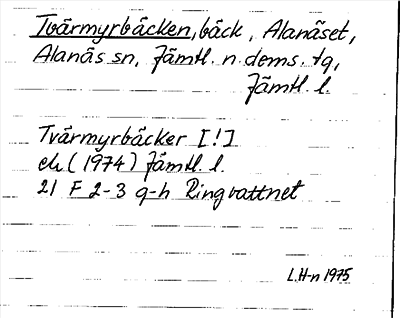 Tvärmyrbäcken, bäck, Alanäset,
Alanäs sn, Jämtl. n. doms. tg,
Jämtl. l.
Tvärmyrbäcker [!]
ek (1974) Jämtl. l.
21 F 2-3 g-h Ringvattnet
L.H-n 1975